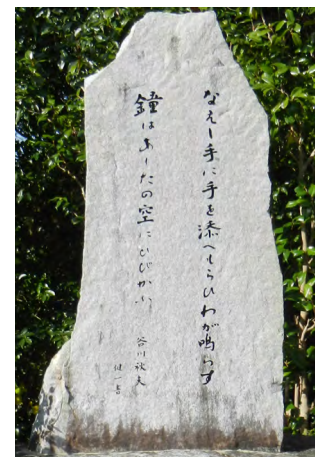 なえし手に手を添へもらひわが鳴らす
鐘はあしたの空にひびかふ
谷川秋夫